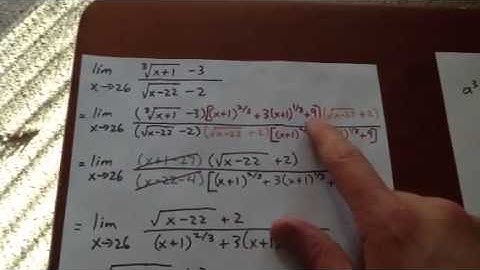 lim x→26 (∛(x+1) - 3) / (√(x-22) - 2)
= lim x→26 (∛(x+1) - 3)[(x+1)^{2/3} + 3(x+1)^{1/3} + 9](√(x-22) + 2) / (√(x-22) - 2)(√(x-22) + 2)[(x+1)^{2/3} )^{1/3} + 9]
= lim x→26 (x+1-27)(√(x-22) + 2) / (x-22-4)[(x+1)^{2/3} + 3(x+1)^{1/3} +
= lim x→26 (√(x-22) + 2) / (x+1)^{2/3} + 3(x+1
a³